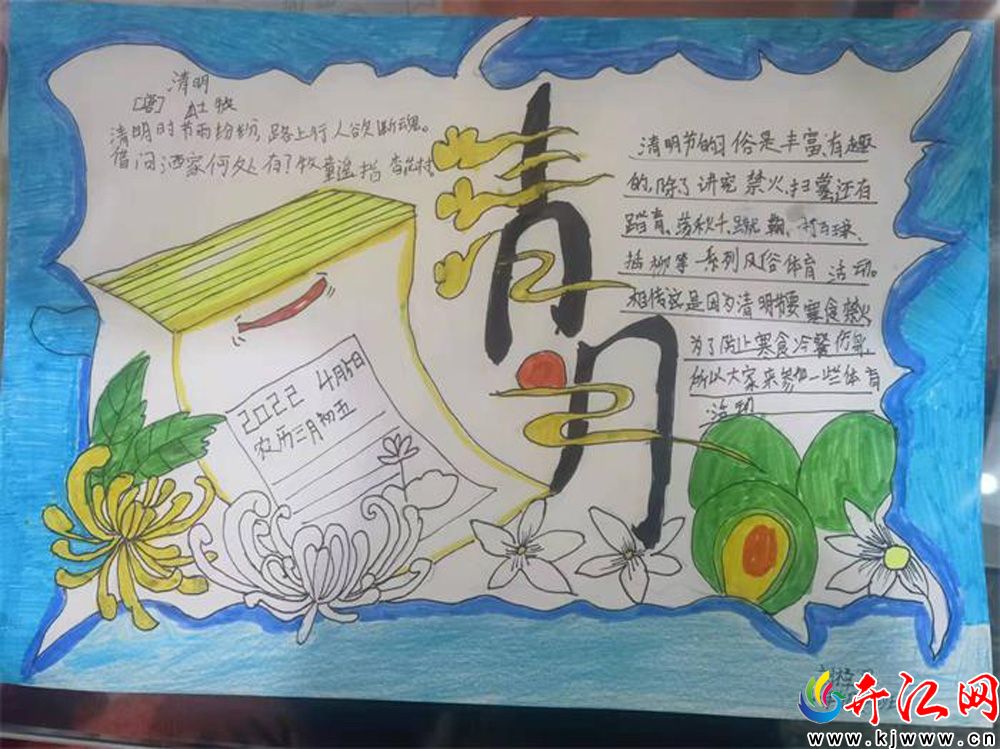 清明
[唐] 杜牧
清明时节雨纷纷，路上行人欲断魂。
借问酒家何处有？牧童遥指杏花村
清明
清明节的习俗是丰富有趣
的,除了讲究禁火、扫墓,还有
踏青、荡秋千、蹴鞠、打马球、
插柳等一系列风俗体育活动。
相传这是因为清明节要寒食禁火,
为了防止寒食冷餐伤身,
所以大家来参加一些体育
活动
2022 4月5日
农历三月初五
开江网
www.kjwww.cn